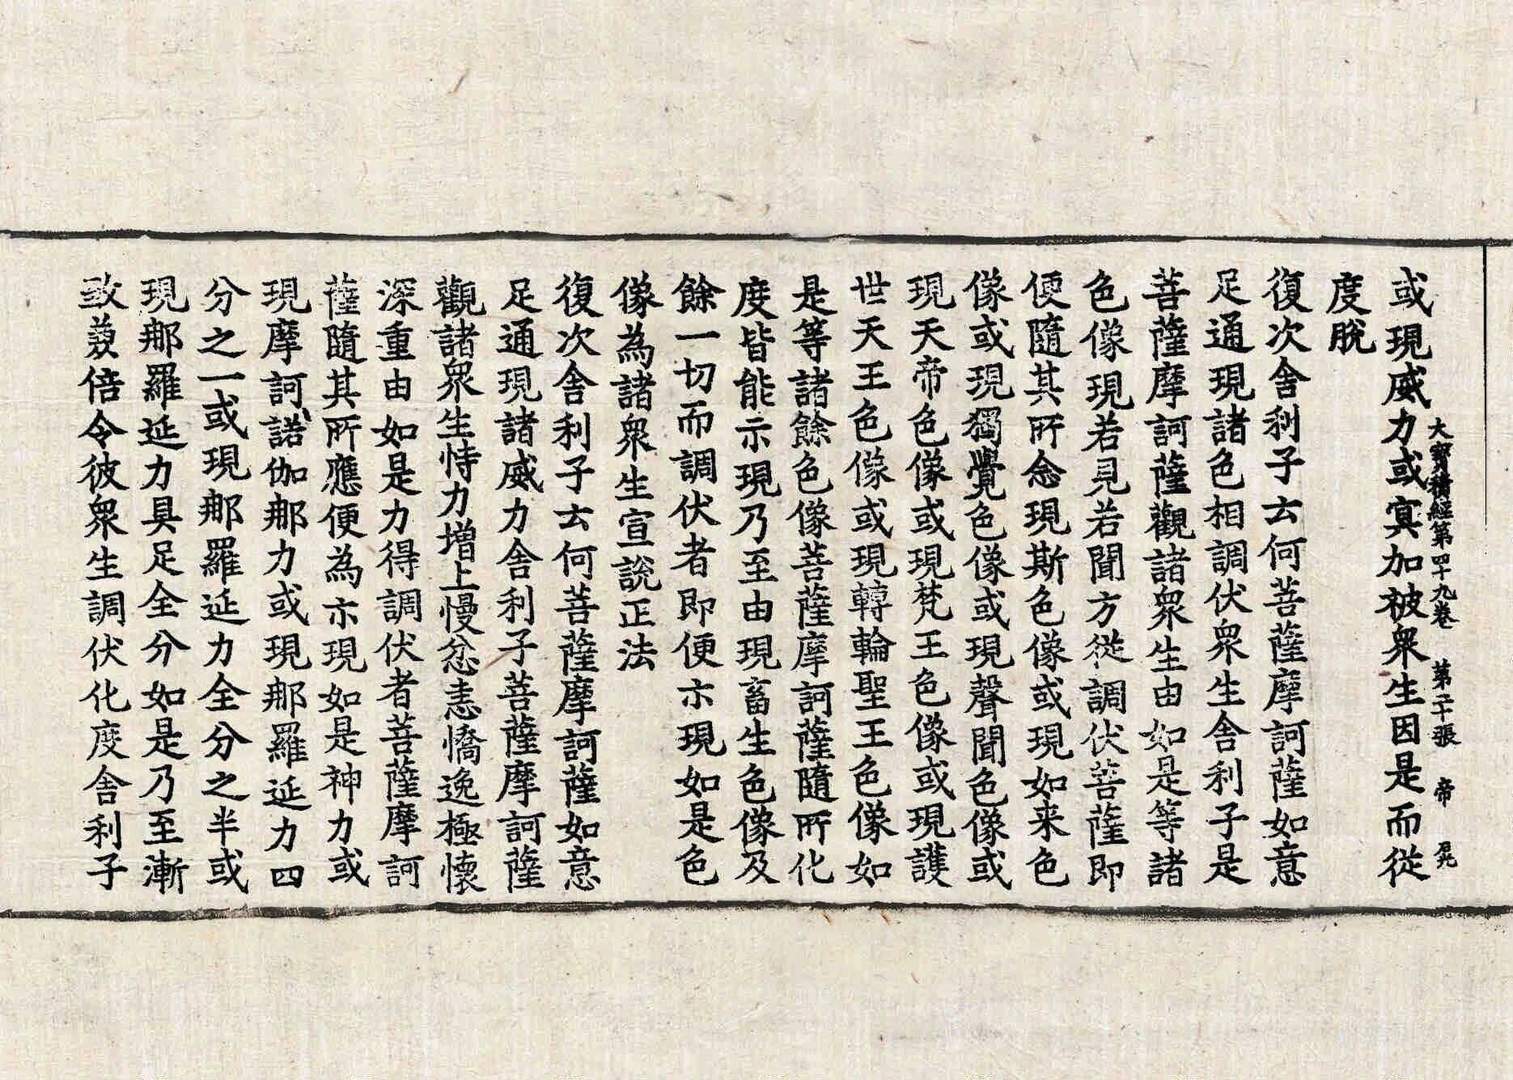 大寶積經第四十九卷　第二十張　帝
或現威力或冥加被衆生因是而從
度脫
復次舍利子云何菩薩摩訶薩如意
足通現諸色相調伏衆生舍利子是
菩薩摩訶薩觀諸衆生由如是等諸
色像現若見若聞方從調伏菩薩即
便隨其所念現斯色像或現如来色
像或現獨覺色像或現聲聞色像或
現天帝色像或現梵王色像或現護
世天王色像或現轉輪聖王色像如
是等諸餘色像菩薩摩訶薩隨所化
度皆能示現乃至由現畜生色像及
餘一切而調伏者即便示現如是色
像為諸衆生宣說正法
復次舍利子云何菩薩摩訶薩如意
足通現諸威力舍利子菩薩摩訶薩
觀諸衆生恃力增上慢忿恚憍逸極懷
深重由如是力得調伏者菩薩摩訶
薩隨其所應便為示現如是神力或
現摩訶諾伽那力或現那羅延力四
分之一或現那羅延力全分之半或
現那羅延力具足全分如是乃至漸
致𠔥倍令彼衆生調伏化度舍利子